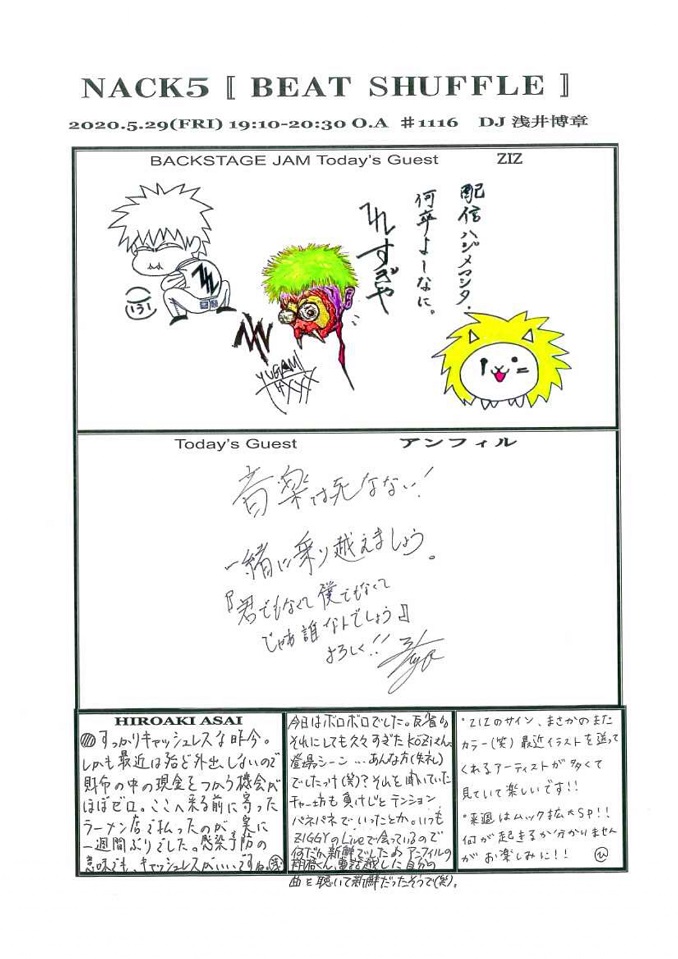 NACK5 『 BEAT SHUFFLE 』
2020.5.29(FRI) 19:10-20:30 O.A ♯1116 DJ 浅井博章
BACKSTAGE JAM Today's Guest ZIZ
配信ハジメマシタ。
何卒よしなに。
すぎや
YUGAMI
Today's Guest アンフィル
音楽は死なない！
一緒に乗り越えましょう。
『君でもなくて僕でもなくて
じゃあ誰なんでしょう』
よろしく！！
HIROAKI ASAI
すっかりキャッシュレスな昨今。
しかも最近は殆ど外出しないので
財布の中の現金をつかう機会が
ほぼゼロ。ここへ来る前に寄った
ラーメン店で払ったのが、実に
一週間ぶりでした。感染予防の
意味でも、キャッシュレスがいいですね。
今日はボロボロでした。反省も
それにしても久々すぎたKöziさん
登場シーン…あんな方(失礼)
でしたっけ(笑)?それを聞いていた
チャーも負けじとテンション
バネバネでいったとか。いつも
ZIGGYのLiveで会っているので
何だか新鮮でしたね アンフィルの
翔梧くん、電話越しした自分の
曲を聴いて新鮮だったそうで(笑)。
・ZIZのサイン、まさかのまた
カラー(笑) 最近イラストを送って
くれるアーティストが多くて
見ていて楽しいです！！
・来週はムック拡大SP！！
何が起きるか分かりません
がお楽しみに！！ ひ